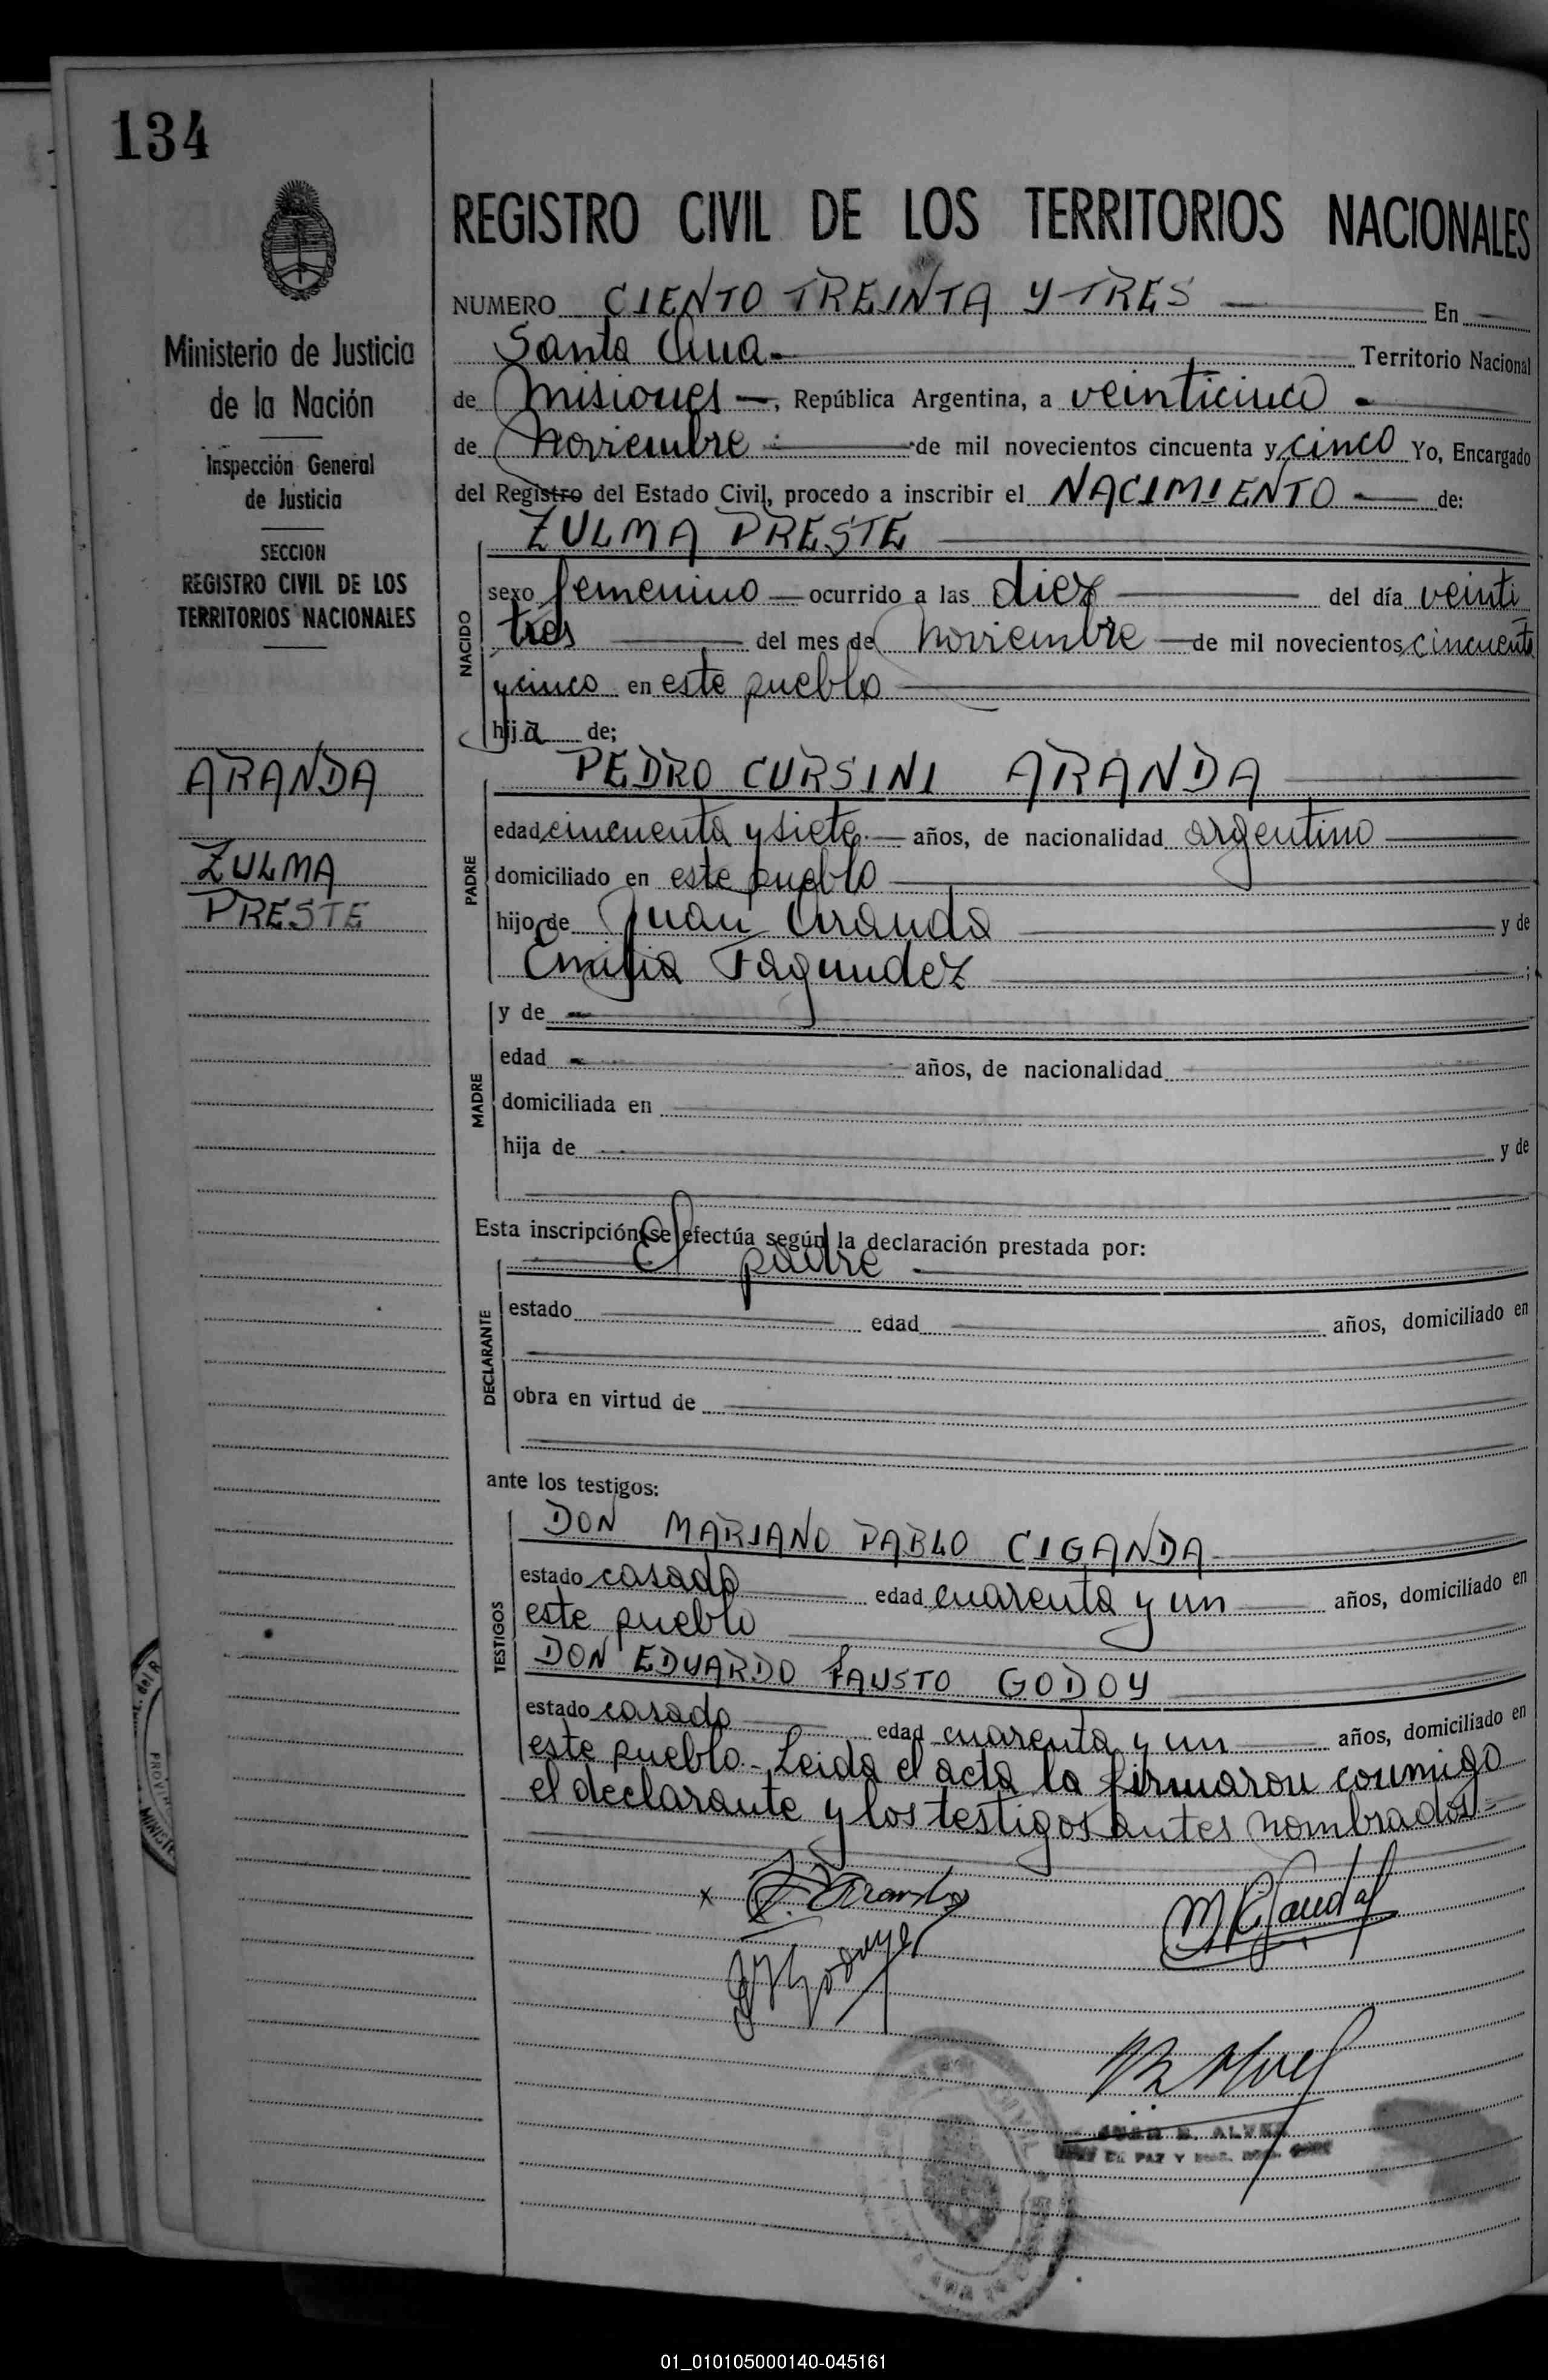 134
Ministerio de Justicia
de la Nación
Inspección General
de Justicia
SECCION
REGISTRO CIVIL DE LOS
TERRITORIOS NACIONALES
ARANDA
ZULMA
PRESTE
REGISTRO CIVIL DE LOS TERRITORIOS NACIONALES
NUMERO CIENTO TREINTA Y TRES En
Santa Ana.- Territorio Nacional
de Misiones —, República Argentina, a veinticinco
de Noviembre de mil novecientos cincuenta y cinco Yo, Encargado
del Registro del Estado Civil, procedo a inscribir el NACIMIENTO de:
ZULMA PRESTE
NACIDO
sexo femenino — ocurrido a las diez del día veinti
tres del mes de Noviembre — de mil novecientos cincuenta
y cinco en este pueblo
hija de;
PADRE
PEDRO CURSINI ARANDA
edad cincuenta y siete. — años, de nacionalidad argentino
domiciliado en este pueblo
hijo de Juan Aranda y de
Emilia Fagundez ;
MADRE
y de
edad años, de nacionalidad
domiciliada en
hija de y de
Esta inscripción se efectúa según la declaración prestada por:
DECLARANTE
El padre
estado edad años, domiciliado en
obra en virtud de
ante los testigos:
TESTIGOS
DON MARIANO PABLO CIGANDA
estado casado edad cuarenta y un años, domiciliado en
este pueblo
DON EDUARDO FAUSTO GODOY
estado casado edad cuarenta y un años, domiciliado en
este pueblo.- Leida el acta la firmaron conmigo
el declarante y los testigos antes nombrados.=
x
JUAN B. ALVEZ
DE PAZ Y
01_010105000140-045161